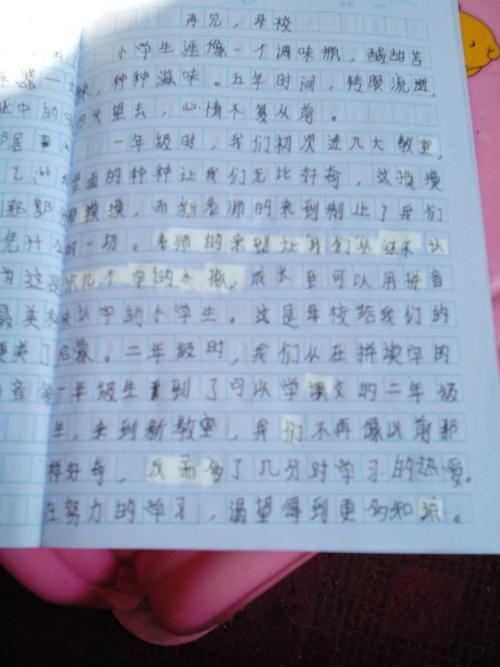 再见，母校
小学生涯像一个调味瓶，酸甜苦
辣，种种滋味。五年时间，转眼流逝，
回头望去，心情不复从前。
一年级时，我们初次进入大教室，
里面的种种让我们无比好奇，这摸摸
那摸摸，而新老师的来到制止了我们
的一切。老师的来到让我们从还不认
识几个字的小孩，成长至可以用拼音
来认字的小学生。这是母校给我们的
启蒙。二年级时，我们从在拼读字的
一年级生来到了可以学课文的二年级
生，来到新教室，我们不再像以前那
样好奇，反而多了几分对学习的热爱。
在努力的学习，渴望得到更多知识。